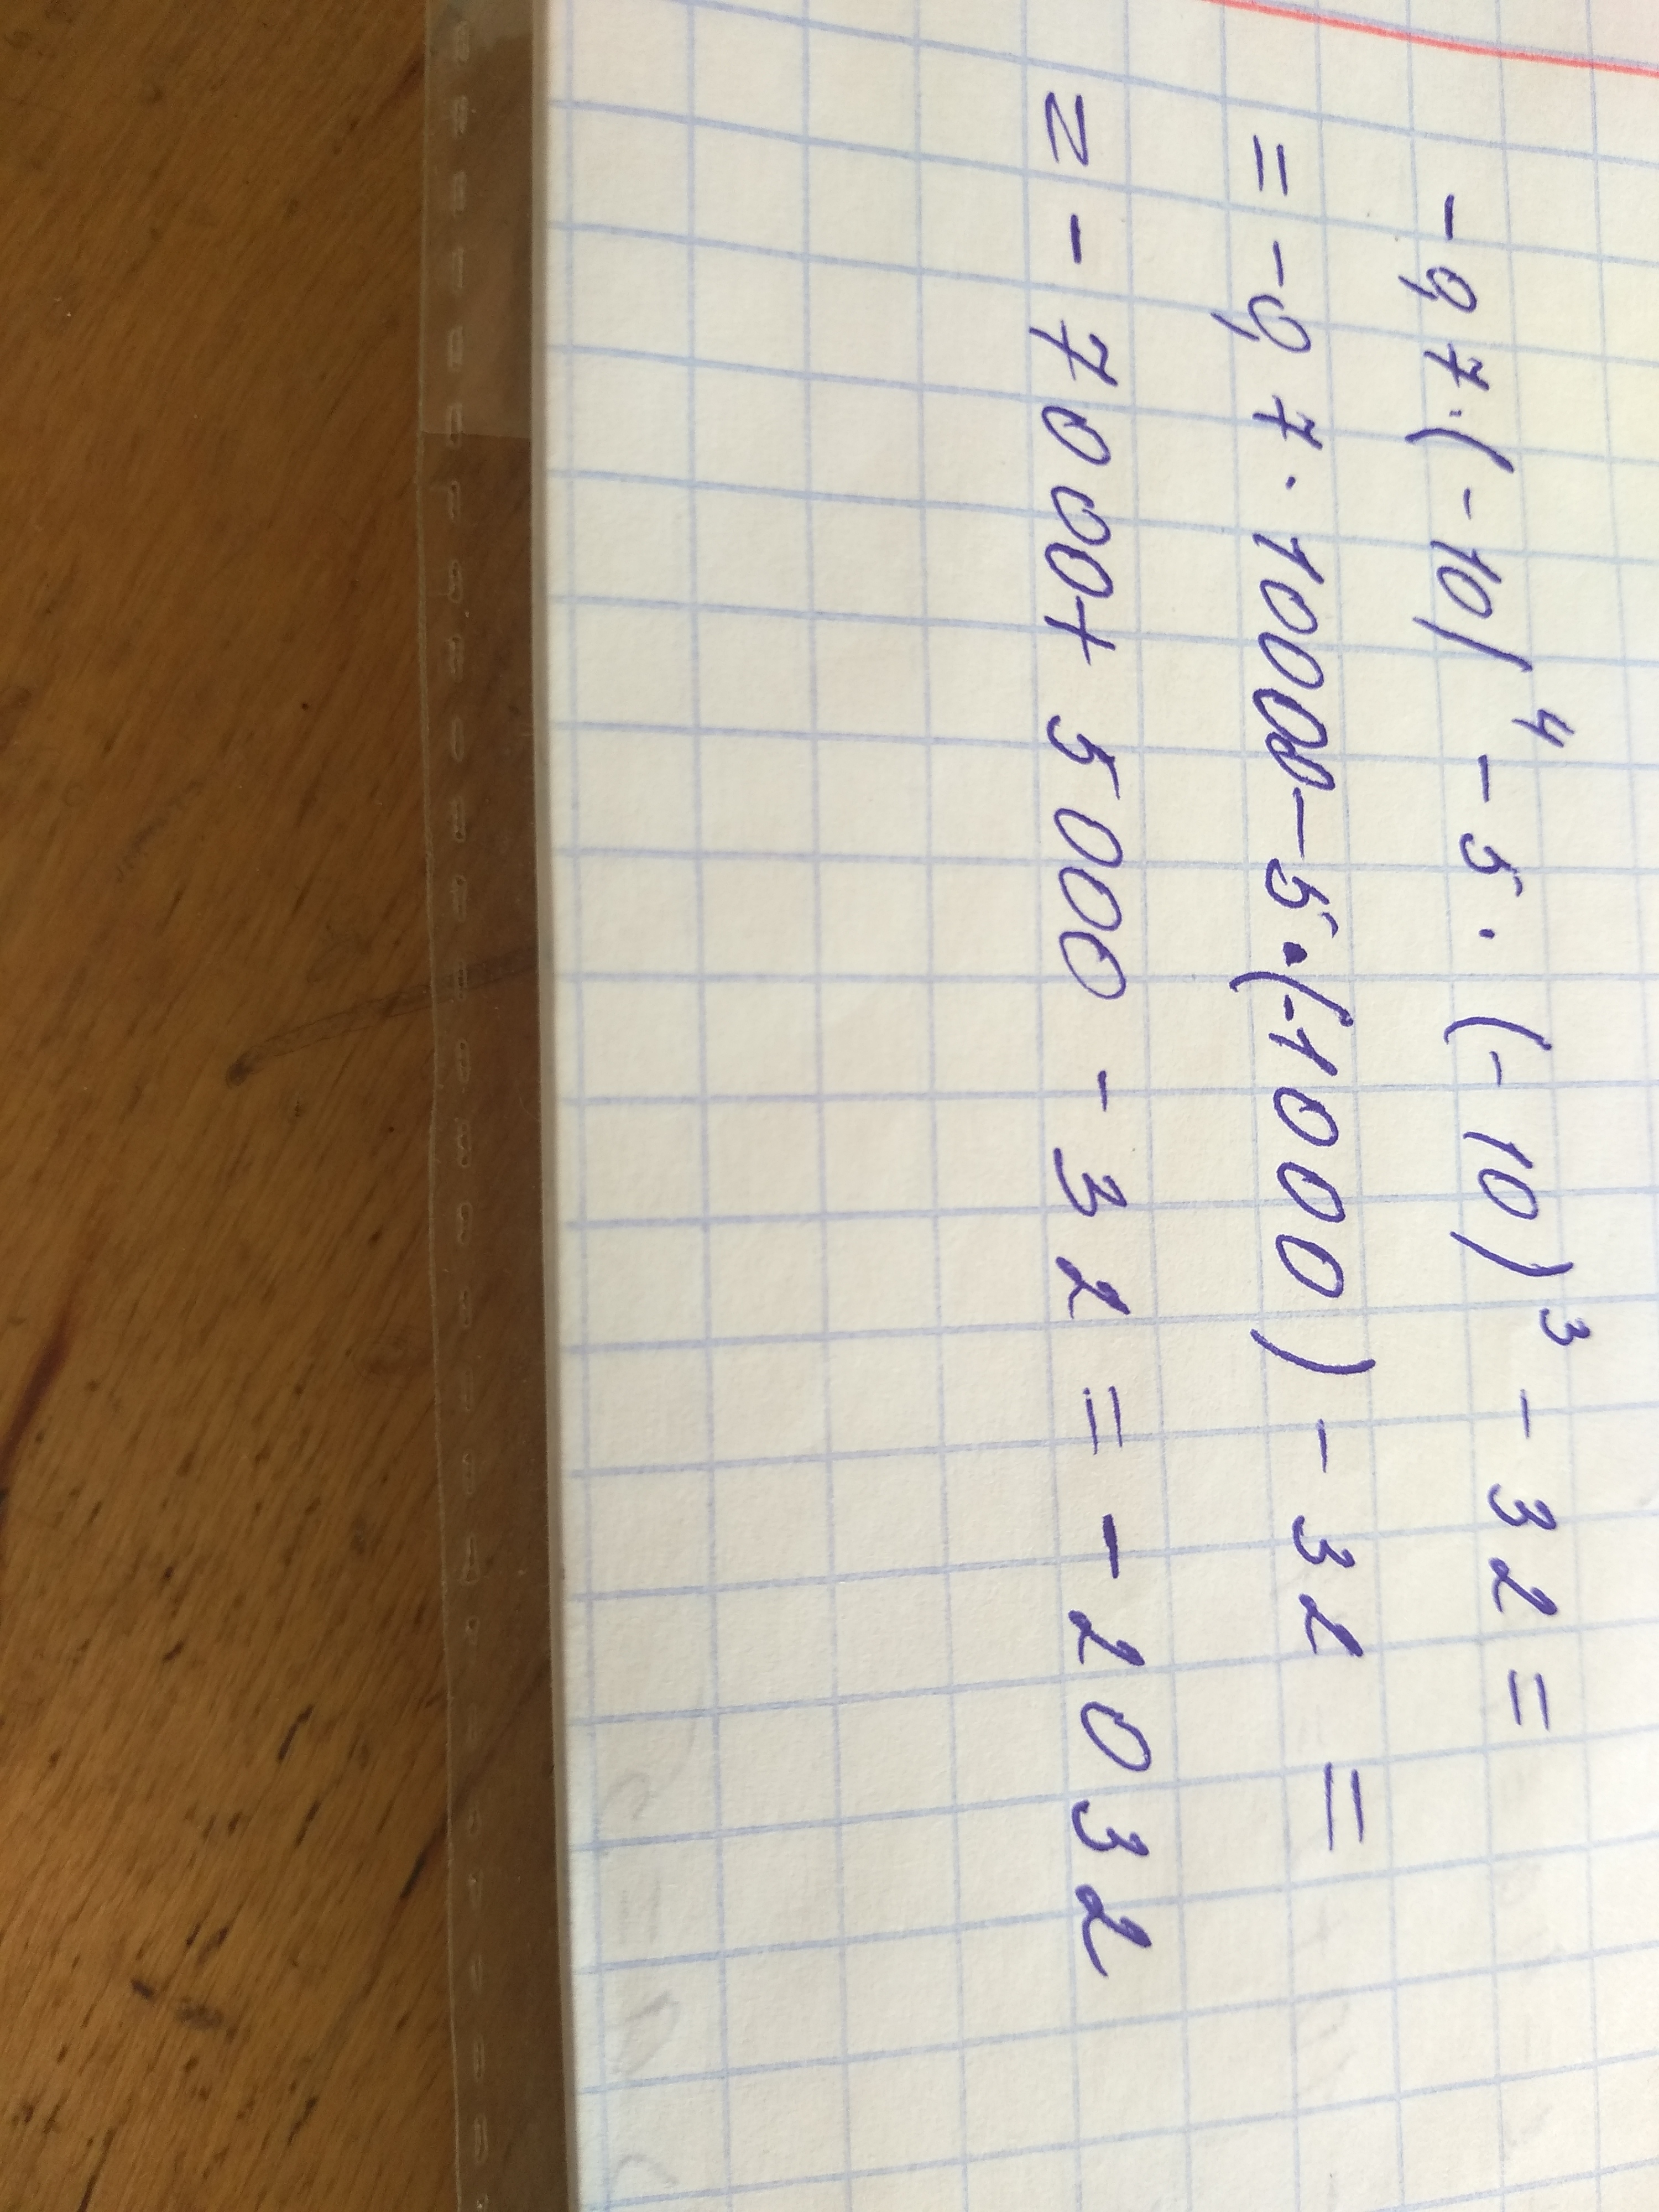 -0,7·(-10)⁴ - 5·(-10)³ - 32 =
= -0,7·10000 - 5·(-1000) - 32 =
= -7000 + 5000 - 32 = -2032